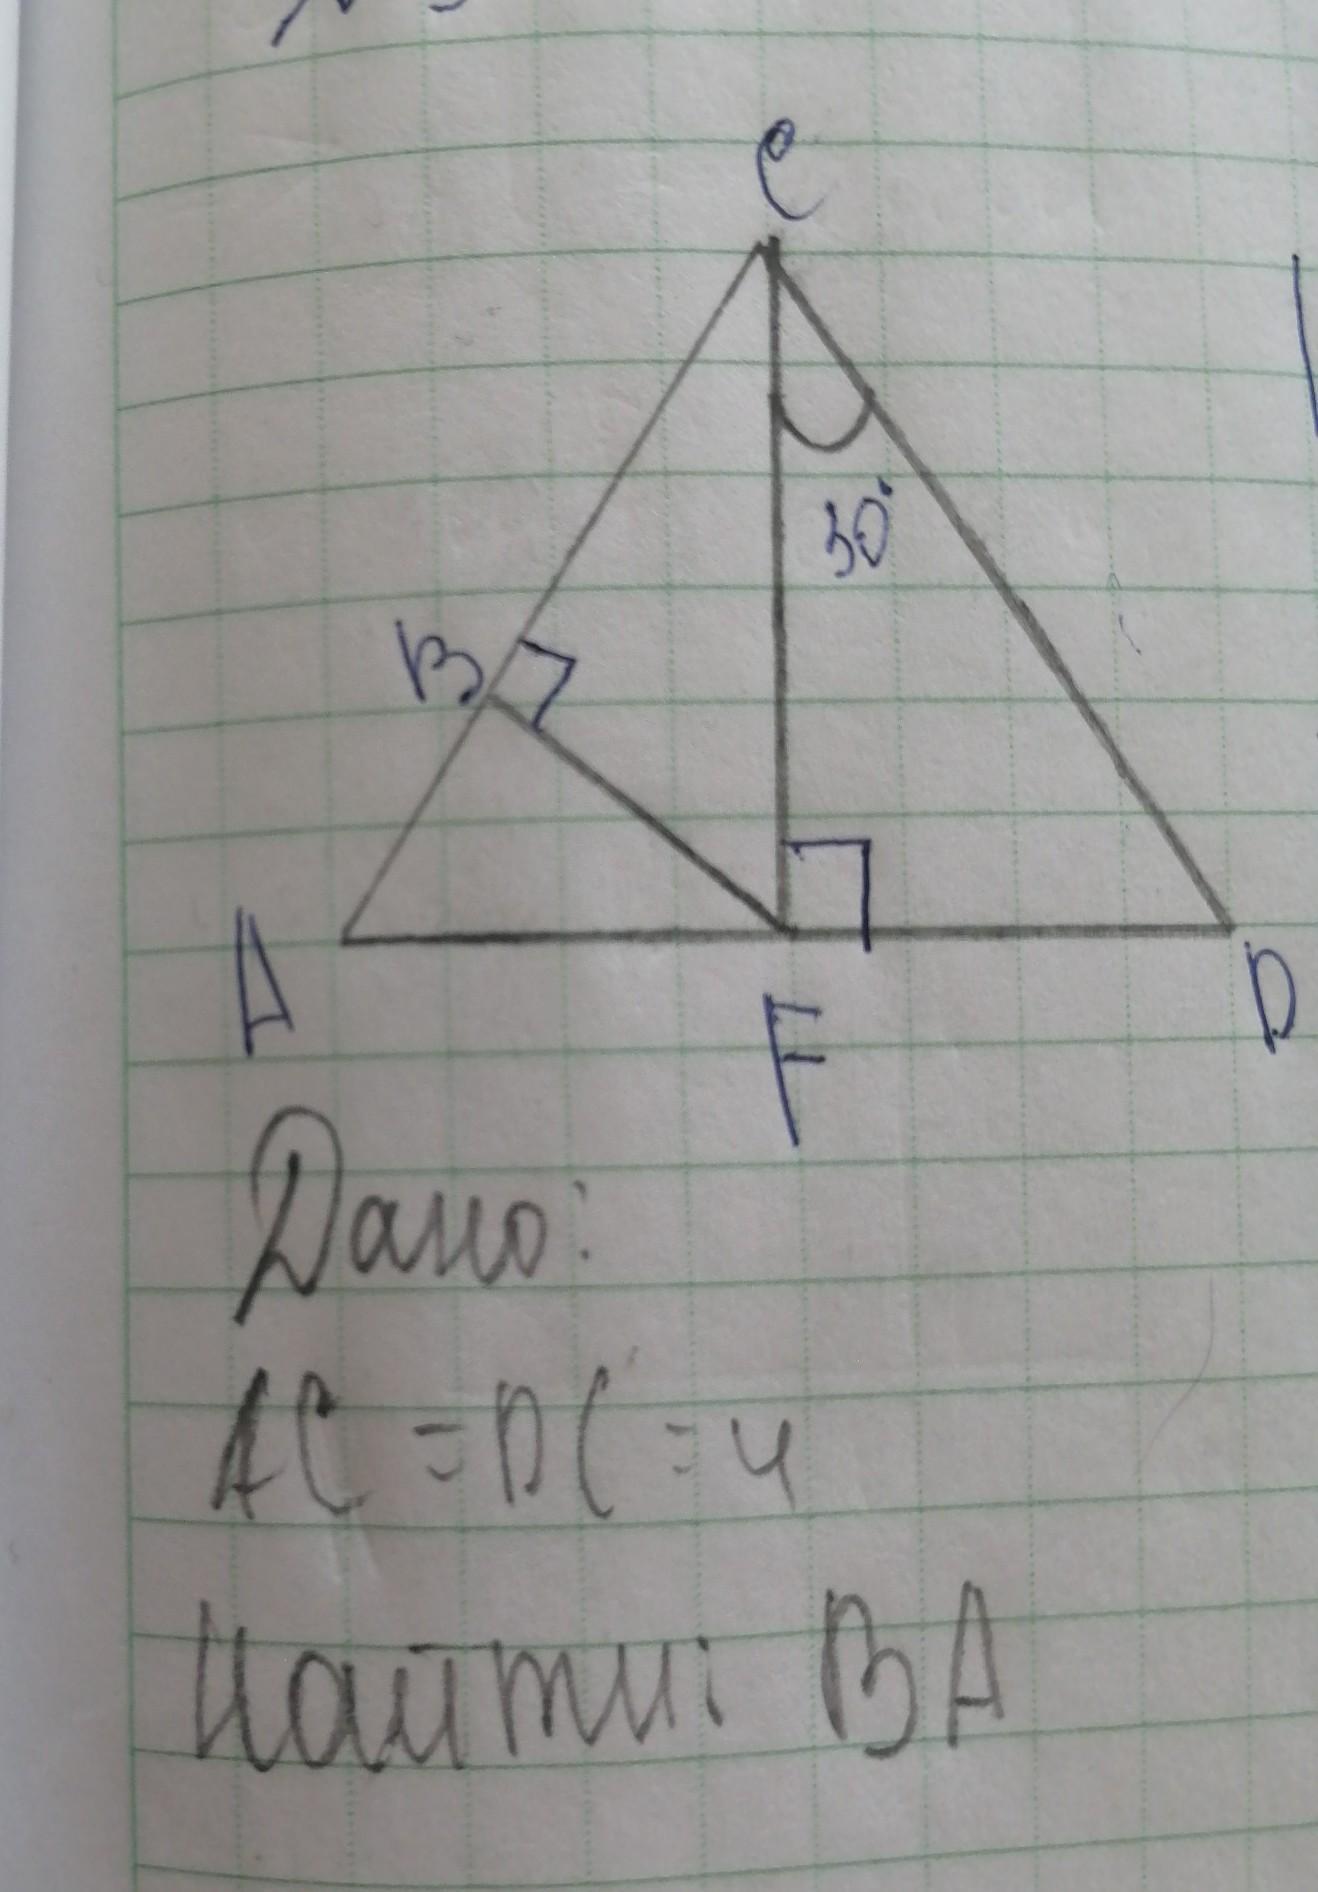 C
30°
B
A
F
D
Дано:
AC = DC = 4
Найти: BA